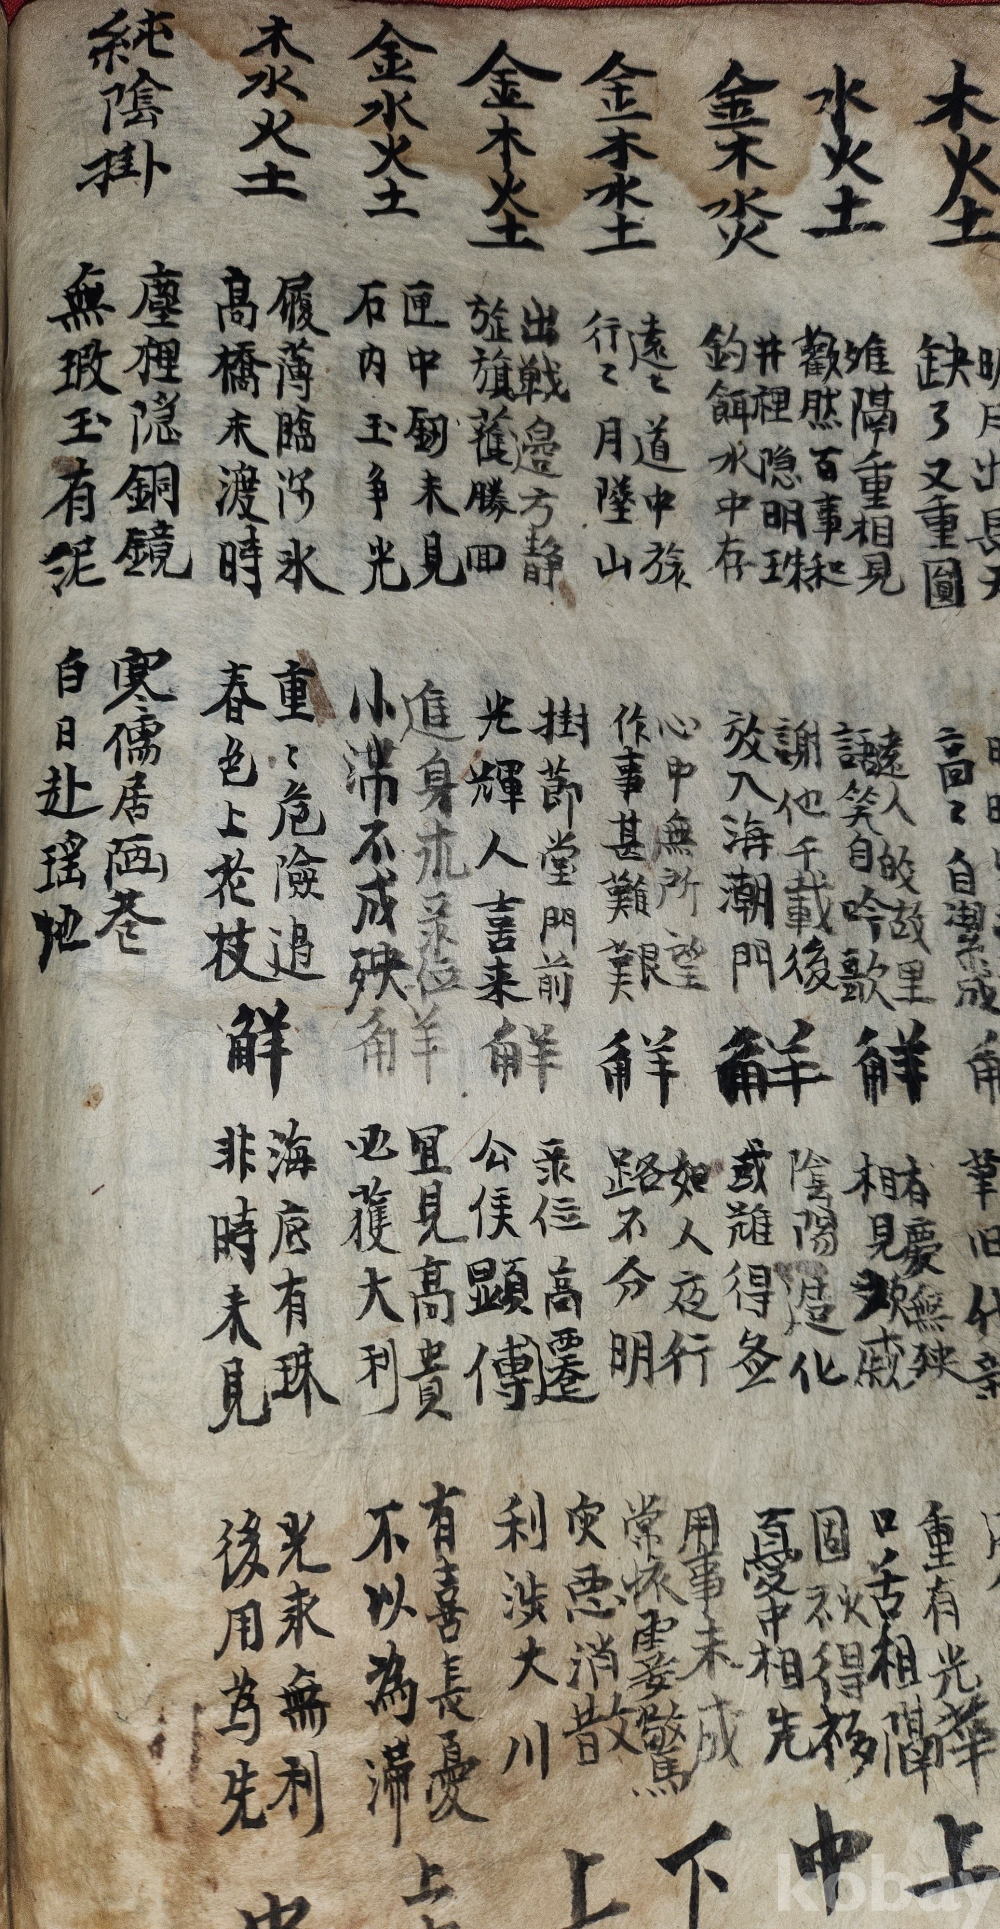 木火土
明月出長天
缺了又重圓
高〻自潔成
水火土
雖隔重相見
歡然百事和
遠人的故里
語笑自吟歌
解
有慶無殃
相見歡戚
重有光華
口舌相關
上
金木水火
井裡隐明珠
釣餌水中存
謝他千載後
放入海潮門
解
陰陽造化
或雖得失
固初得移
憂中相先
中
金木水土
遠〻道中旅
行〻月墜山
心中無所望
作事甚難艱
解
如人夜行
路不分明
用事未成
常懷憂驚
下
金木火土
出戰邊方静
旋旗獲勝回
樹節堂門前
光輝人喜来
解
录位高遷
公侯顕傳
灾惡消散
利涉大川
上
金水火土
匣中劒未見
石内玉争光
進身求录位
小滞不成殃
解
且見高貴
必獲大利
有喜長憂
不以為滞
上
木水火土
履薄臨深氷
高橋未渡時
重〻危險過
春色上花枝
解
海底有珠
非時未見
光求無利
後用為先
中
純陰掛
塵裡隠銅鏡
無瑕玉有泥
寒儒居陋巷
白日赴瑶地
kobay